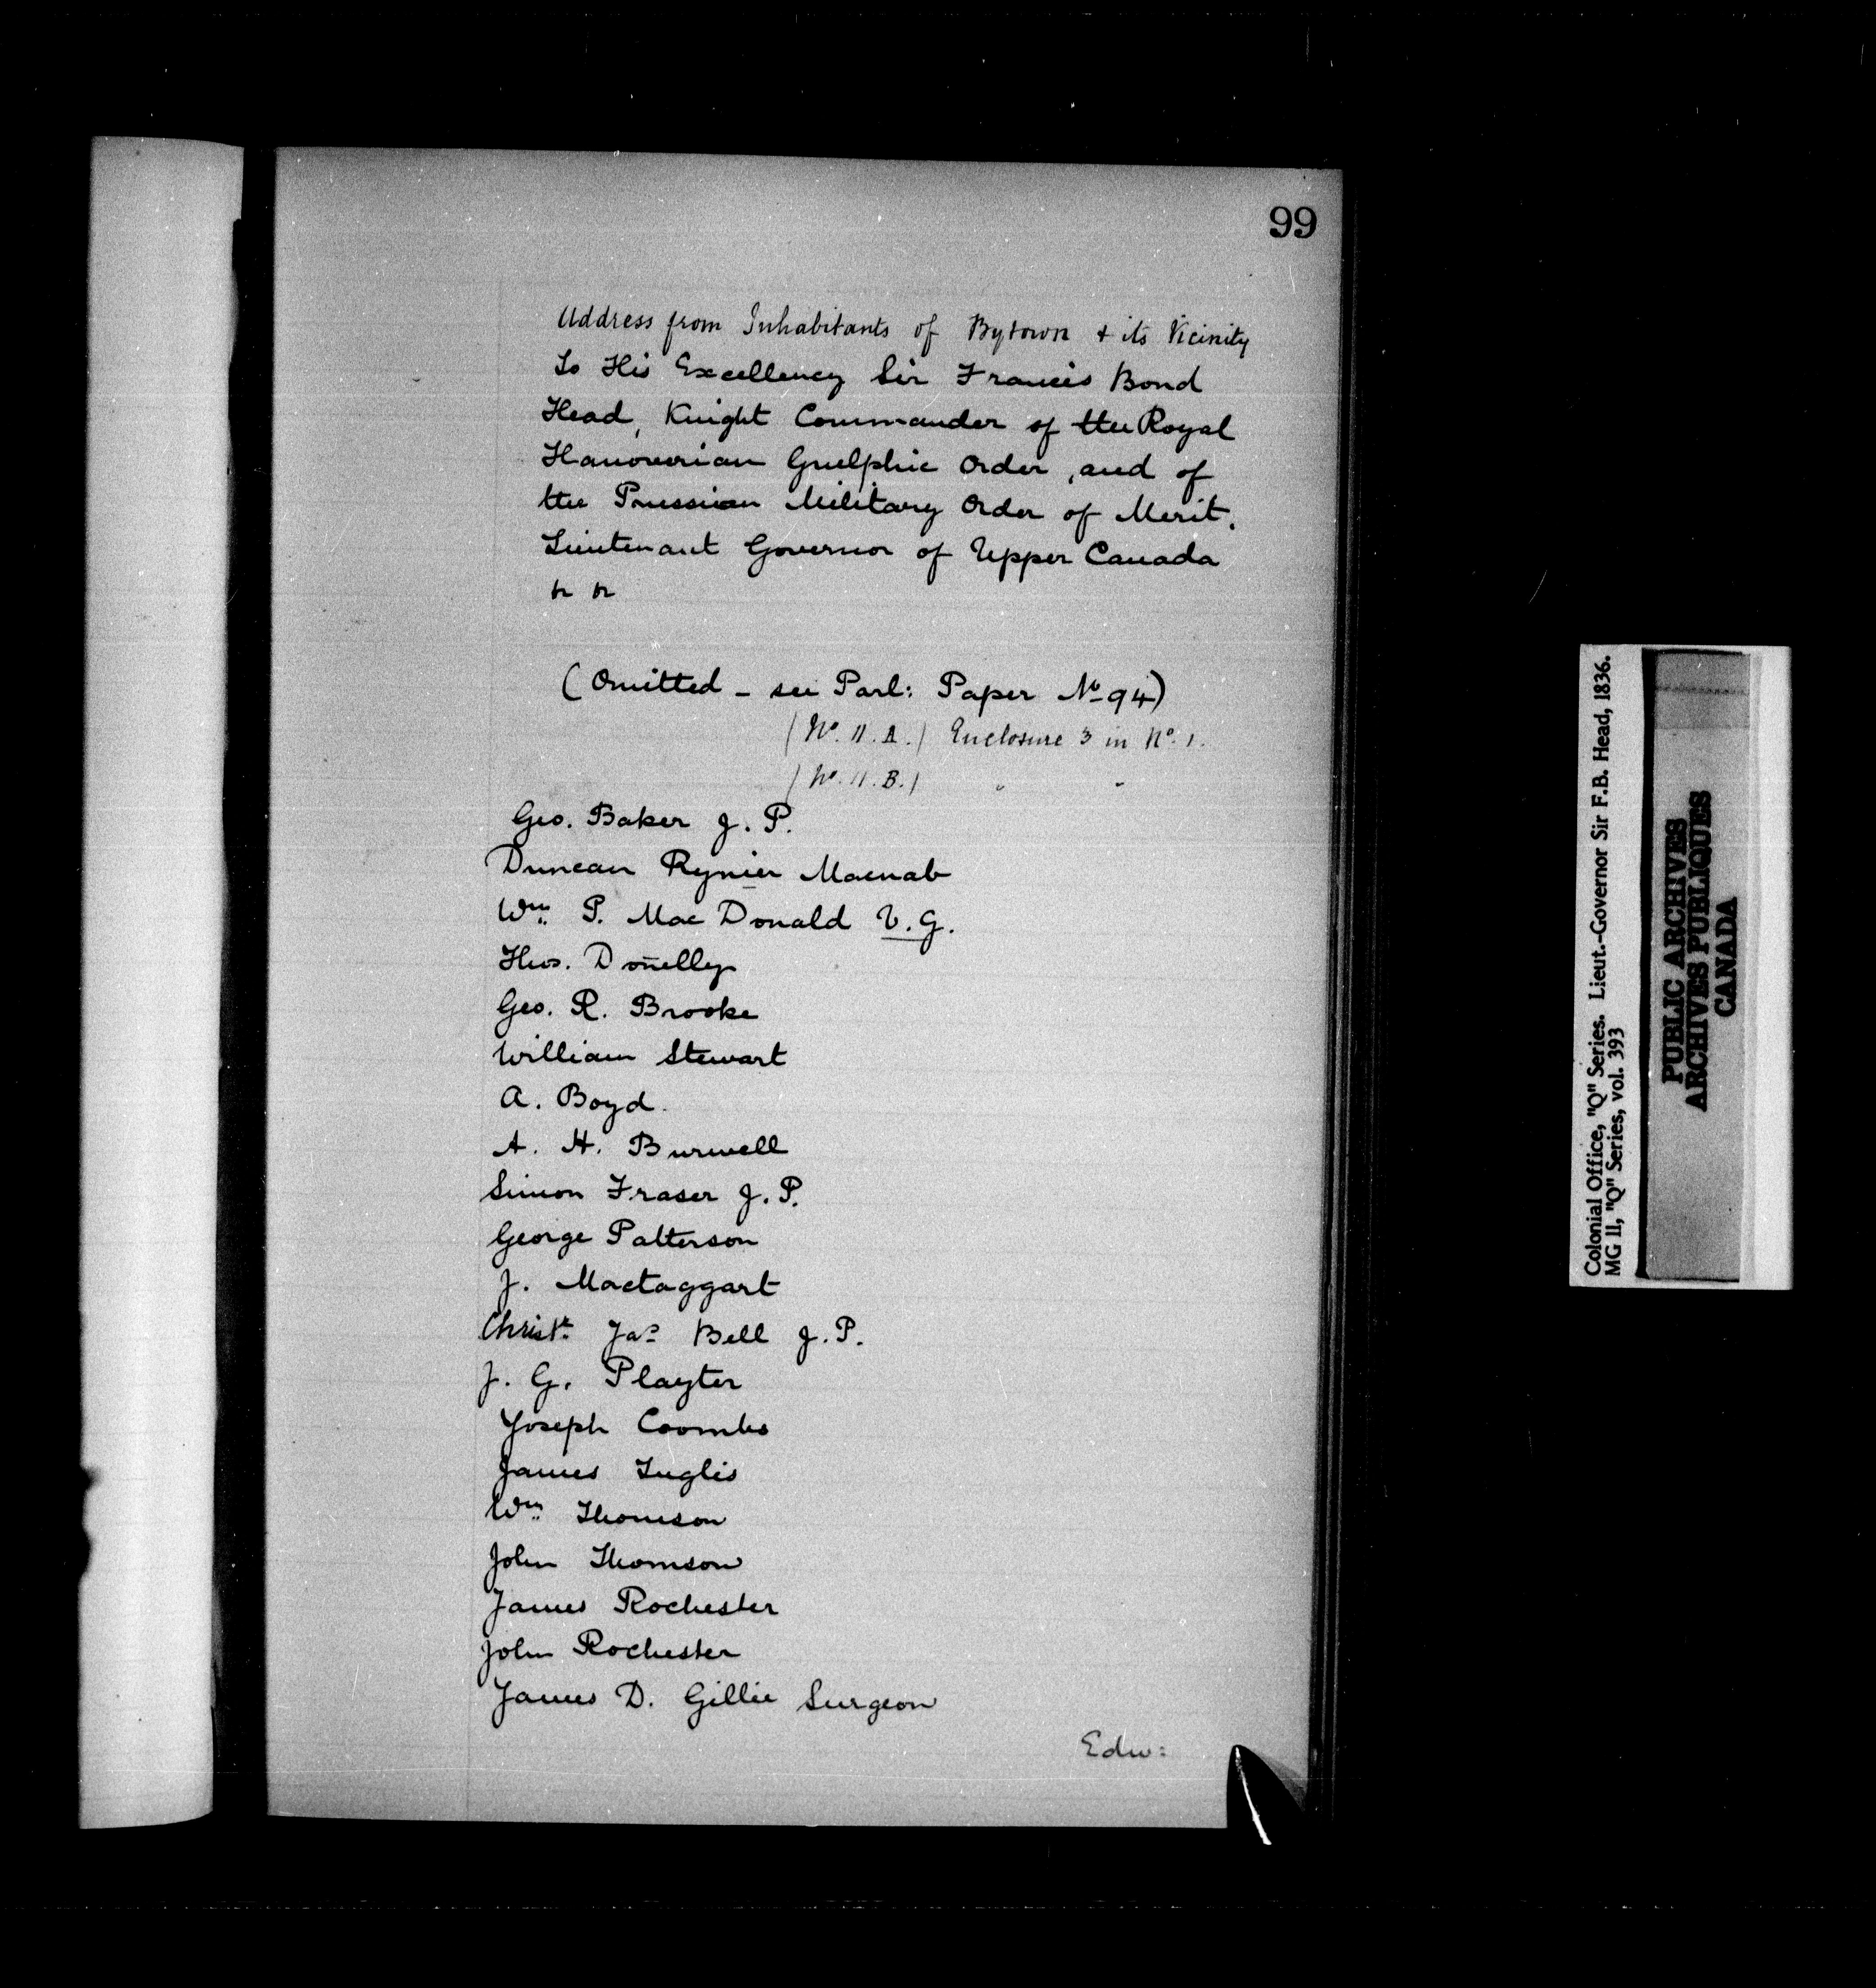 99
Address from Inhabitants of Bytown & its Vicinity
To His Excellency Sir Francis Bond
Head, Knight Commander of the Royal
Hanoverian Guelphic Order, and of
the Prussian Military Order of Merit.
Lieutenant Governor of Upper Canada
&c &c
(Omitted - see Parl: Paper No 94)
(No. 11. A.) Enclosure 3 in No. 1.
(No. 11. B.) " "
Geo. Baker J. P.
Duncan Rynier Macnab
Wm. P. Mac Donald V. G.
Thos. Donelly
Geo. R. Brooke
William Stewart
A. Boyd.
A. H. Burwell
Simon Fraser J. P.
George Patterson
J. Mactaggart
Christr Jas Bell J. P.
J. G. Playter
Joseph Coombs
James Inglis
Wm Thomson
John Thomson
James Rochester
John Rochester
James D. Gillie Surgeon
Edw:
Colonial Office, "Q" Series. Lieut.-Governor Sir F.B. Head, 1836.
MG 11, "Q" Series, vol. 393
PUBLIC ARCHIVES
ARCHIVES PUBLIQUES
CANADA